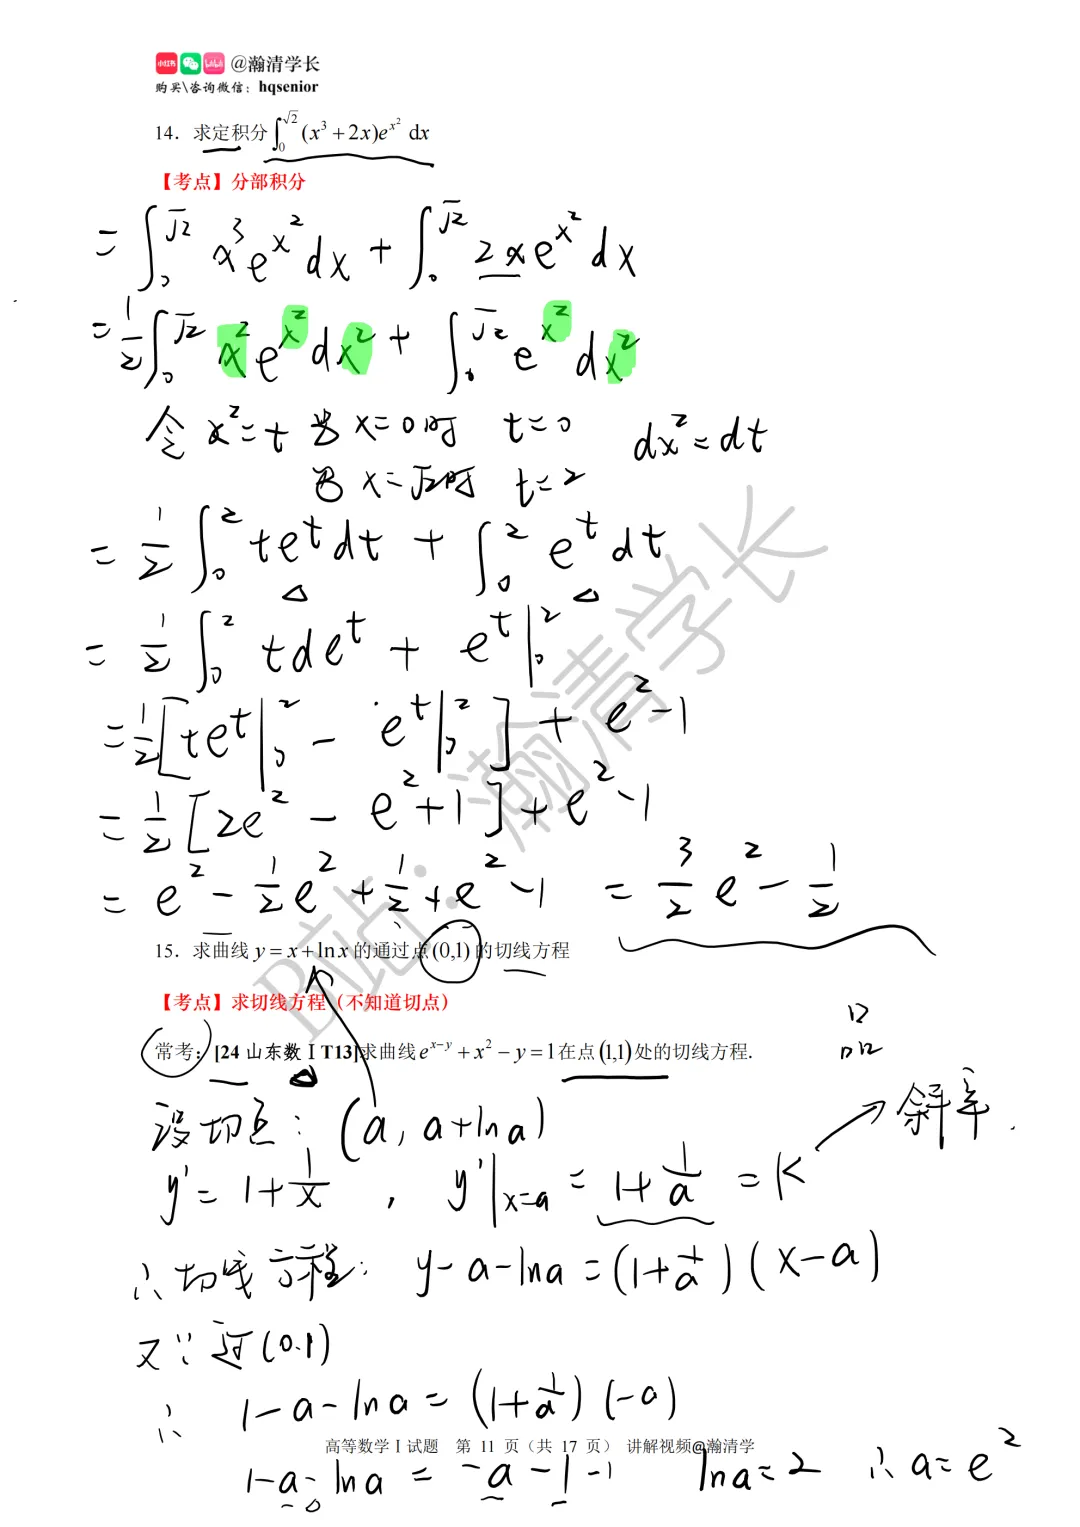 @瀚清学长
购买\咨询微信：hqsenior
14．求定积分∫₀^√2 (x³+2x)e^{x²} dx
【考点】分部积分
=∫₀^√2 x³e^{x²}dx + ∫₀^√2 2xe^{x²}dx
=1/2∫₀^√2 x²e^{x²}dx² + ∫₀^√2 e^{x²}dx²
令 x²=t 当 x=0时 t=0 dx²=dt
当 x=√2时 t=2
= 1/2 ∫₀² te^t dt + ∫₀² e^t dt
= 1/2 ∫₀² tde^t + e^t|₀²
=1/2[te^t|₀² - e^t|₀²] + e²-1
= 1/2[2e² - e²+1]+e²-1
= e² - 1/2e² + 1/2 + e² -1 = 3/2 e² - 1/2
15．求曲线 y = x+ln x 的通过点(0,1)的切线方程
【考点】求切线方程（不知道切点）
常考：[24 山东数 I T13]求曲线 e^{x-y} + x² - y = 1 在点 (1,1) 处的切线方程.
口
口口
设切点：(a, a+lna)
斜率
y' = 1+1/x , y'|x=a = 1+1/a = K
∴切线方程: y-a-lna =(1+1/a)(x-a)
又∵过(0.1)
∴ 1-a-lna = (1+1/a)(-a)
高等数学 I 试题 第 11 页（共 17 页） 讲解视频@瀚清学
1-a-lna = -a-1 -1 lna=2 ∴a=e²
B站：瀚清学长